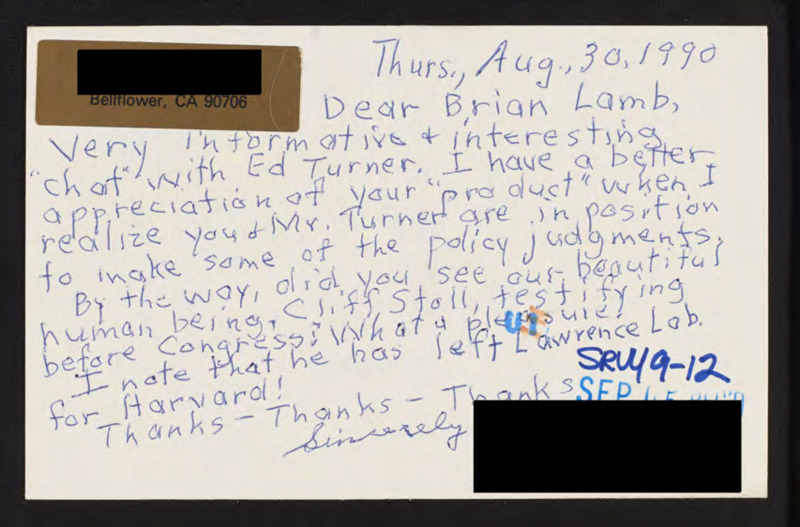 Bellflower, CA 90706
Thurs., Aug., 30, 1990
Dear Brian Lamb,
Very informative & interesting
"chat" with Ed Turner. I have a better
appreciation of your "product" when I
realize you & Mr. Turner are in position
to make some of the policy judgments.
By the way, did you see our beautiful
human being, Cliff Stoll, testifying
before Congress? What a pleasure!
I note that he has left Lawrence Lab.
for Harvard!
Thanks - Thanks - Thanks
Sincerely
SRW 9-12
SEP